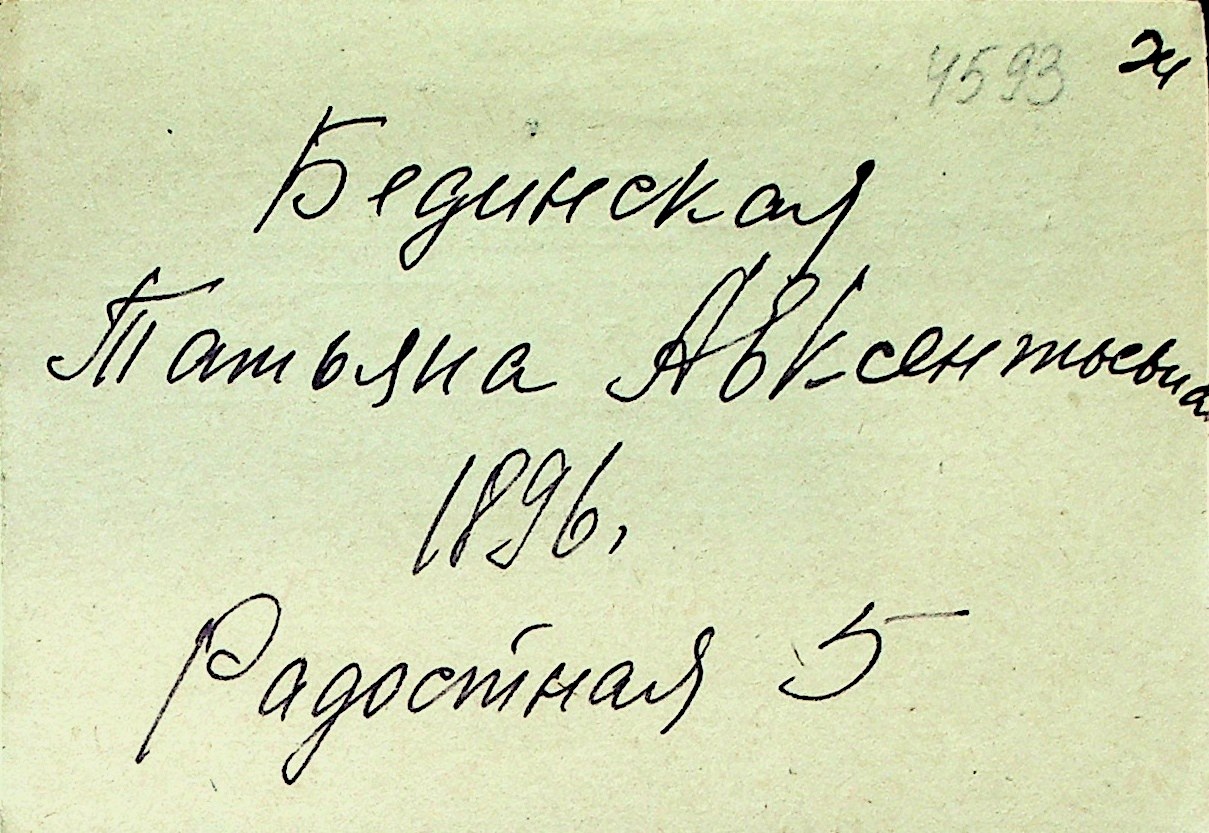 4593 Ж
Бединская
Татьяна Авксентьевна
1896.
Радостная 5